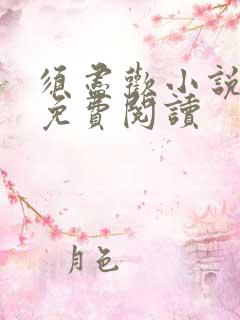 須盡歡小說
免費閱讀
月色